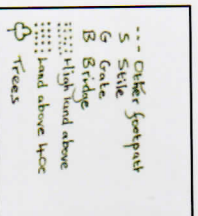 --- Other footpath
S Stile
G Gate
B Bridge
High land above
Land above 400
Trees